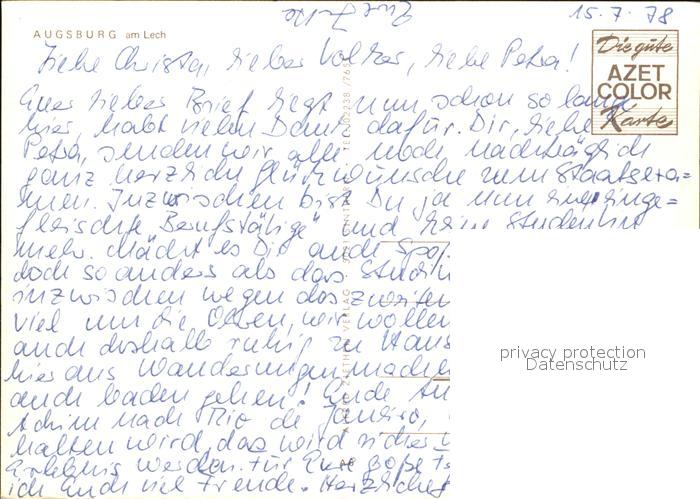 Eure Jutta
15.7.78
AUGSBURG am Lech
Die gute
AZET
COLOR
Karte
Liebe Christa, lieber Volker, liebe Petra!
Euer lieber Brief liegt nun schon so lange
hier, habt vielen Dank dafür. Dir, liebe
Petra, senden wir alle noch nachträglich
ganz herzliche Glückwünsche zum Staatsexa=
men. Inzwischen bist Du ja nun eine einge=
fleischte "Berufstätige" und keine Studentin
mehr. Macht es Dir auch Spaß
doch so anders als das Studiu
inzwischen wegen des zweiten
viel um die Ohren, wir wollen
auch deshalb ruhig zu Haus
hier aus Wanderungen machen
auch baden gehen. Ende Au
Achim nach Rio de Janeiro,
halten wird, das wird sicher
Erlebnis werden. Für Eure große
ich Euch viel Freude. Herzliche
privacy protection
Datenschutz